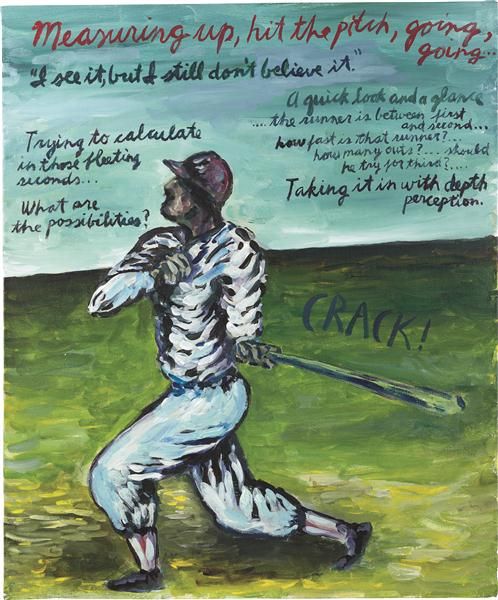 Measuring up, hit the pitch, going,
going...
"I see it, but I still don't believe it."
A quick look and a glance
.....the runner is between first
and second...
how fast is that runner?...
how many outs?... should
he try for third?....
Taking it in with depth
perception.
Trying to calculate
in those fleeting
seconds...
What are
the possibilities?
CRACK!